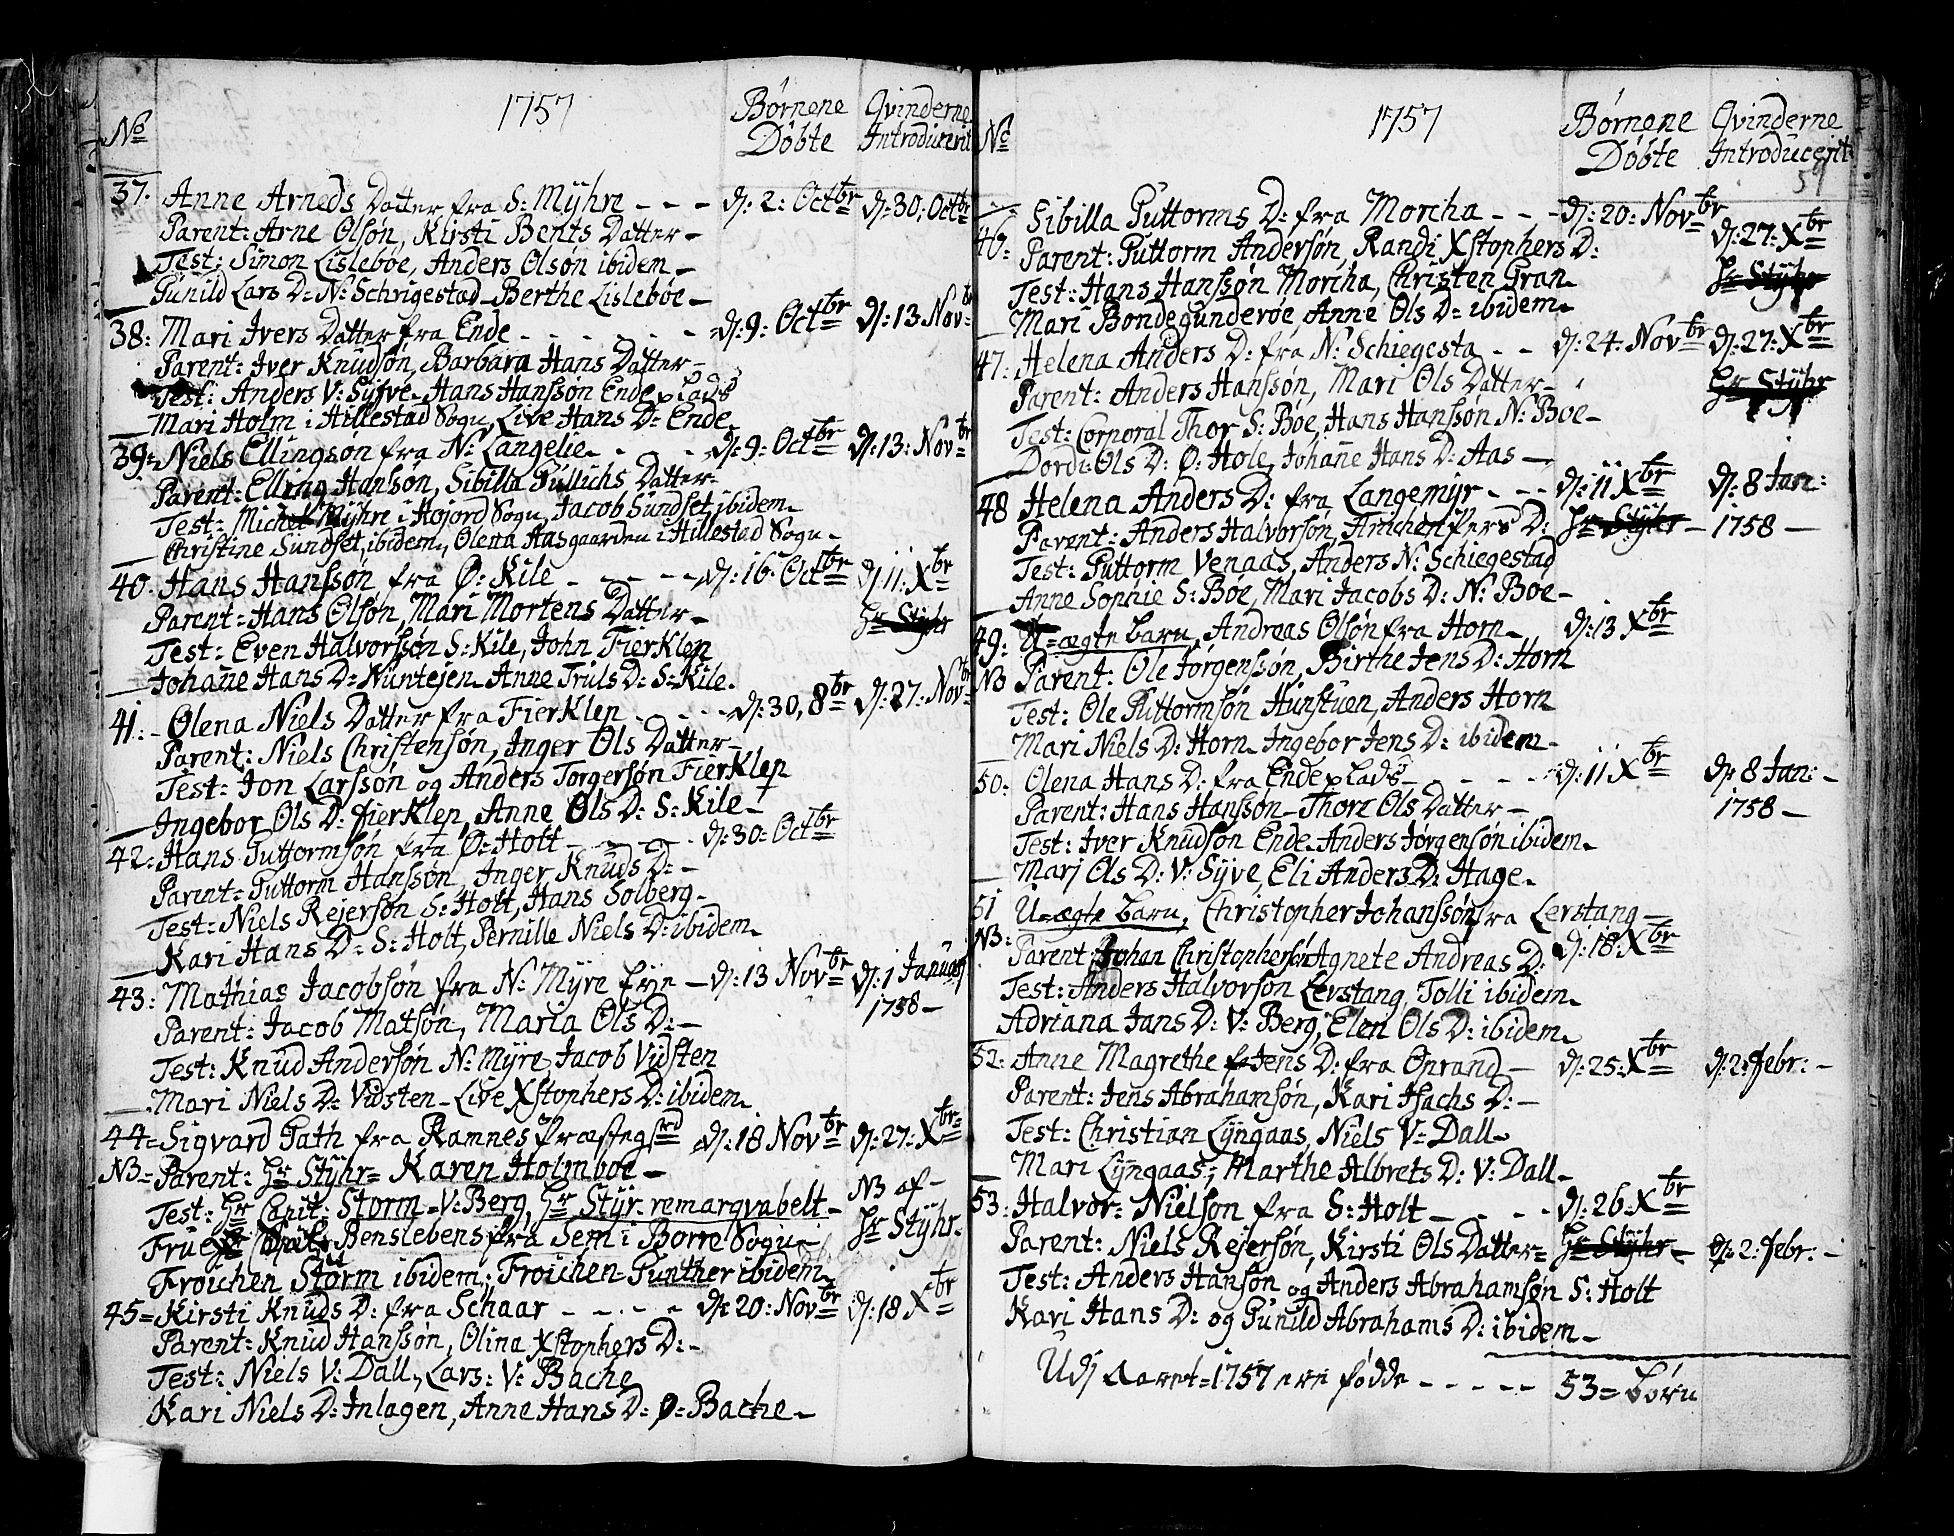 1757
Børnene Qvinderne
No Døbte Introducerit
37. Anne Arneds Datter fra S: Mÿhre - - - d: 2: Octbr d: 30: Octbr
Parent: Arne Olsøn, Kirsti Bents Datter -
Test: Simon Lislebøe, Anders Olsøn ibidem -
Gunild Lars D: N: Schrigestad - Berthe Lislebøe -
38: Mari Ivers Datter fra Ende - - - - d: 9: Octbr d: 13 Novbr
Parent: Iver Knudsøn, Barbara Hans Datter -
Test: Anders V: Sÿfve - Hans Hanssøn Ende plads
Mari Holm i Hillestad Sogn, Live Hans D: Ende
39: Niels Ellingsøn fra N: Langelie - - - d: 9: Octbr d: 13: Novbr
Parent: Elling Hansøn, Sibilla Pullichs Datter -
Test: Michel Mÿhre i Hojord Sogn, Jacob Sundset ibidem
Christine Sundset, ibidem, Olena Aasgaarden i Hillestad Sogn -
40: Hans Hanssøn fra Ø: Kile - - - - d: 16: Octbr d: 11: Xbr
Parent: Hans Olsøn, Mari Mortens Datter - Hr Stÿhr
Test: Even Halvorssøn S: Kile, John Fierklep
Johañe Hans D: Nuntejen - Anne Truls D: S: Kile.
41: Olena Niels Datter fra Fierklep - - - d: 30, 8br d: 27: Novbr
Parent: Niels Christensøn, Inger Ols Datter -
Test: Jon Larssøn og Anders Torgersøn Fierklep
Ingebor Ols D: Fierklep, Anne Ols D: S: Kile -
42: Hans Guttormsøn fra Ø: Holt - - - d: 30: Octbr
Parent: Guttorm Hanssøn, Inger Knuds D: -
Test: Niels Rejersøn S: Holt, Hans Solberg -
Kari Hans D: S: Holt, Pernille Niels D: ibidem
43: Mathias Jacobsøn fra N: Mÿre Eÿe - d: 13 Novbr d: 1 Januarj
1758 -
Parent: Jacob Matsøn, Maria Ols D: -
Test: Knud Andersøn N: Mÿre, Jacob Vidsten
Mari Niels D: Vidsten - Live Xstophers D: ibidem
44 = Sigvard Gath fra Ramnes Præstegrd d: 18 Novbr d: 27: Xbr
NB = Parent: Hr Stÿhr = Karen Holmboe -
NB af -
Test: Hr Capit: Storm - V: Berg, Hr Stÿr - remarqvabelt -
Hr Stÿhr.
Frue Benslebens fra Sem i Borre Sogn -
Froichen Storm ibidem; Froichen Gunther ibidem
45 = Kirsti Knuds D: fra Schaar - - - - d: 20: Novbr d: 18 Xbr
Parent: Knud Hanssøn, Olina Xstophers D: -
Test: Niels V: Dall, Lars: V: Bache
Kari Niels D: Inlagen, Anne Hans D: Ø: Bache -
1757
Børnene Qvinderne
No Døbte Introducerit
59
46: Sibilla Guttorms D: fra Morcha - - - d: 20: Novbr
d: 27: Xbr
Parent: Guttorm Andersøn, Randi Xstophers D:
Test: Hans Hanssøn Morcha, Christen Gran Hr Stÿhr
Mari Bondegunderøe, Anne Ols D: ibidem
47: Helena Anders D: fra N: Schiegesta - - d: 24: Novbr d: 27: Xbr
Parent: Anders Hanssøn, Mari Ols Datter - Hr Stÿhr
Test: Corporal Thor S: Bøe, Hans Hanssøn N: Boe -
Dordi Ols D: Ø: Hole, Johañe Hans D: Aas -
48 Helena Anders D: fra Langemÿr - - - d: 11 Xbr d: 8 Jan:
Parent: Anders Halvorsøn, Anichen Pers D: Hr Stÿhr - 1758 -
Test: Guttorm Venaas, Anders N: Schiegestad
Anne Sophie S: Bøe, Mari Jacobs D: N: Boe -
49: U=ægte barn, Andreas Olsøn fra Horn - d: 13 Xbr
NB Parent: Ole Jørgenssøn, Birthe Jens D: Horn
Test: Ole Guttormsøn Hunstuen, Anders Horn
Mari Niels D: Horn - Ingebor Jens D: ibidem -
50: Olena Hans D: fra Ende plads - - - - d: 11 Xbr d: 8 Jan: -
Parent: Hans Hanssøn - Thore Ols Datter - 1758 -
Test: Iver Knudsøn Ende - Anders Jørgensøn ibidem
Marj Ols D: V: Sÿve, Eli Anders D: Hage -
51 U=ægte barn, Christopher Johanssøn fra Lerstang -
NB: d: 18: Xbr
Parent: Johan Christophersøn Agnete Andreas D:
Test: Anders Halvorsøn Lerstang, Tolli ibidem
Adriana Jans D: V: Berg, Elen Ols D: ibidem
52: Anne Magrethe Jens D: fra Onrand - d: 25: Xbr d: 2: febr: -
Parent: Jens Abrahamsøn, Kari Isachs D: -
Test: Christian Lÿngaas, Niels V: Dall -
Mari Lÿngaas; Marthe Albrets D: V: Dall -
53: Halvor Nielsøn fra S: Holt - - - - d: 26: Xbr
Parent: Niels Rejersøn, Kirsti Ols Datter = Hr Stÿhr - d: 2: febr: -
Test: Anders Hansøn og Anders Abrahamsøn S: Holt
Kari Hans D: og Gunild Abrahams D: ibidem -
Udj Aaret = 1757 ere fødde - - - - - 53 = børn